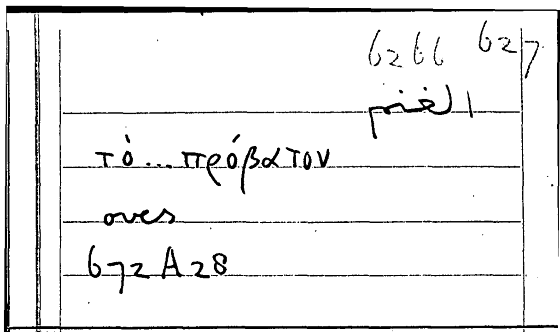 626b 627
الغنم
τὸ... πρόβατον
oves
672A28